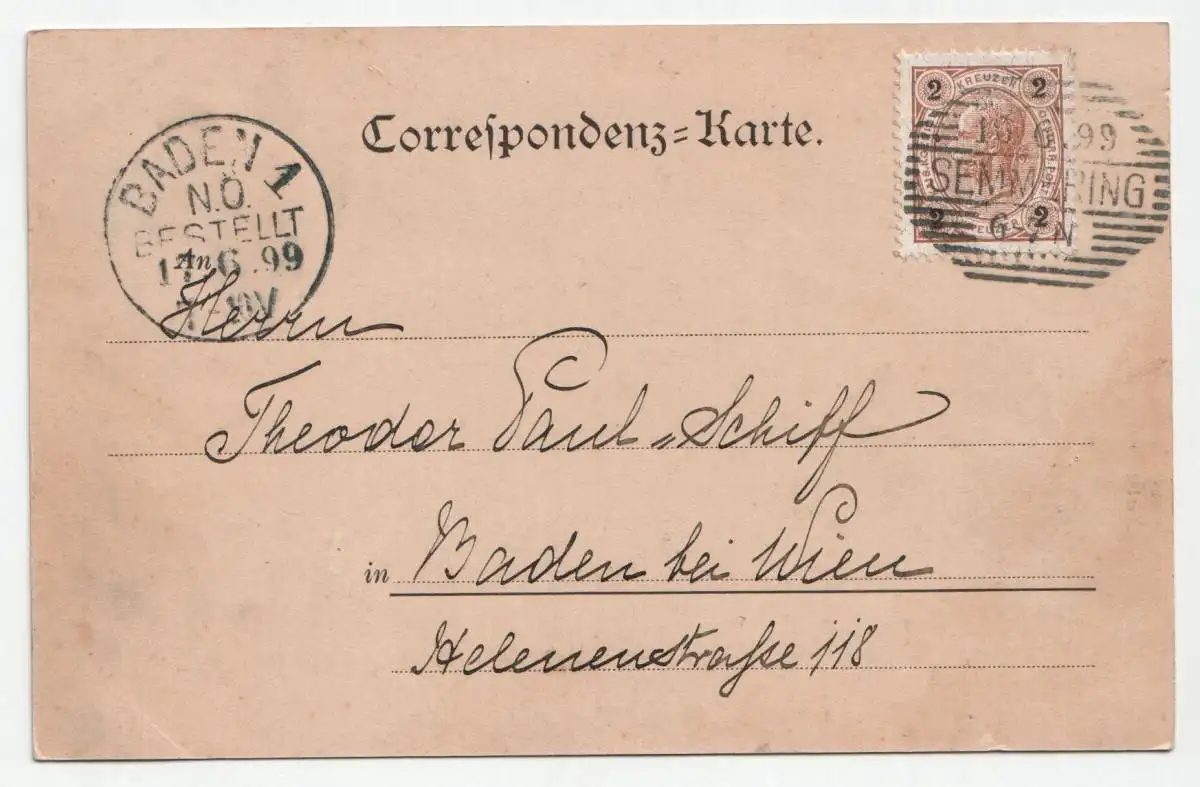 Correspondenz=Karte.
2 KREUZER 2
2 2
6 .99
SEMMERING
6 N
BADEN 1
N.Ö.
BESTELLT
17.6.99
An
Herrn
Theodor Paul-Schiff
in Baden bei Wien
Helenenstraße 118